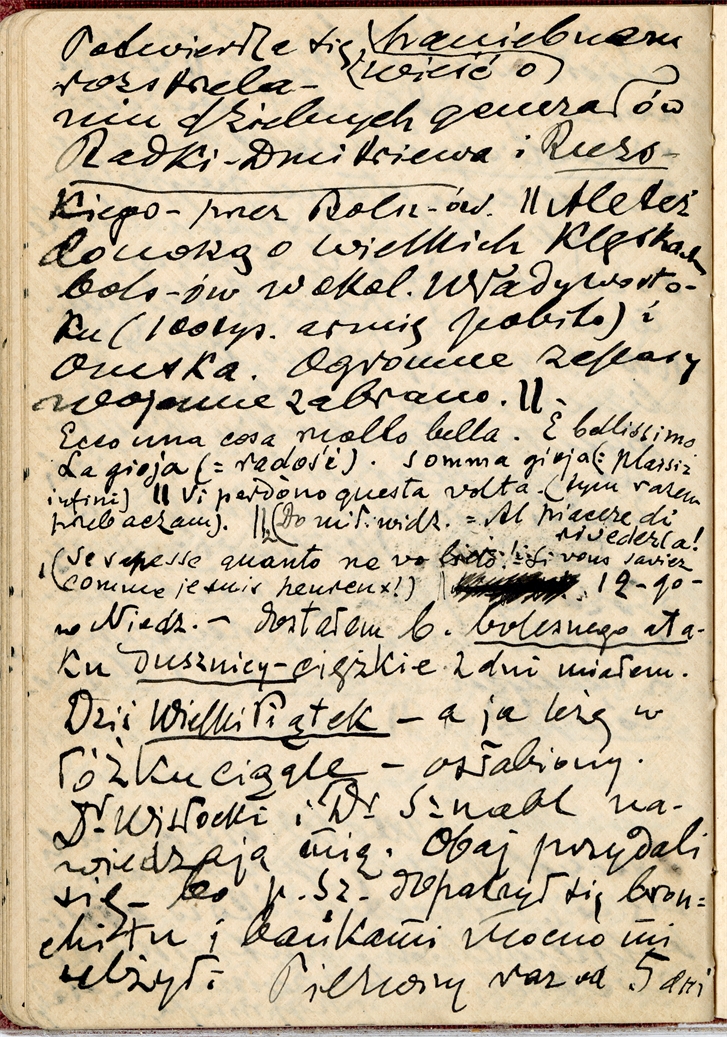 Potwierdza się haniebnem
(wieść o)
rozstrzela-
niu dzielnych generałów
Radki-Dmitriewa i Ruzs-
kiego - przez Bolsz-ów. || Ale też
donoszą o wielkich klęskach
bols-ów w okol. Władywosto-
ku (100 tys. armię pobito) i
Omska. Ogromne zapasy
wojenne zabrano. || -
Ecco una cosa molto bella. È bellissimo
La gioja (= radość). Somma gioja (= plaisir
infini) || Vi perdòno questa volta. (tym razem
przebaczam). || (Do mił. widz. = Al piacere di
rivederla!
(Se sapesse quanto ne vo lieto! = Si vous saviez
comme je suis heureux!) || 12-go-
w Niedz. - dostałem b. bolesnego ata-
ku Dusznicy - ciężkie 2 dni miałem.
Dziś Wielki Piątek - a ja leżę w
łóżku ciągle - osłabiony.
Dr Wisłocki i Dr Sznabl na-
wiedzają mię. Obaj przydali
się - bo p. Sz. dopatrzył się bron=
chitu i bańkami mocno mi
ulżył. Pierwszy raz od 5 dni